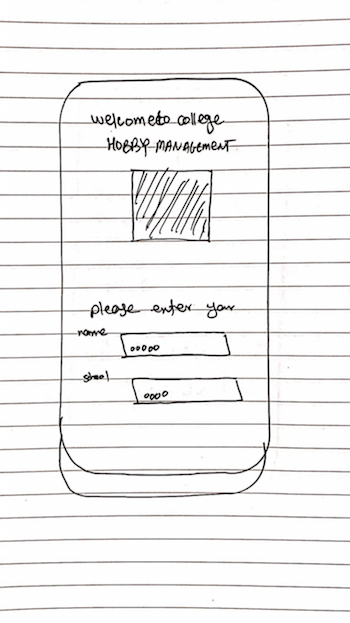 welcome to college
HOBBY MANAGEMENT
please enter your
name
ooooo
oooo